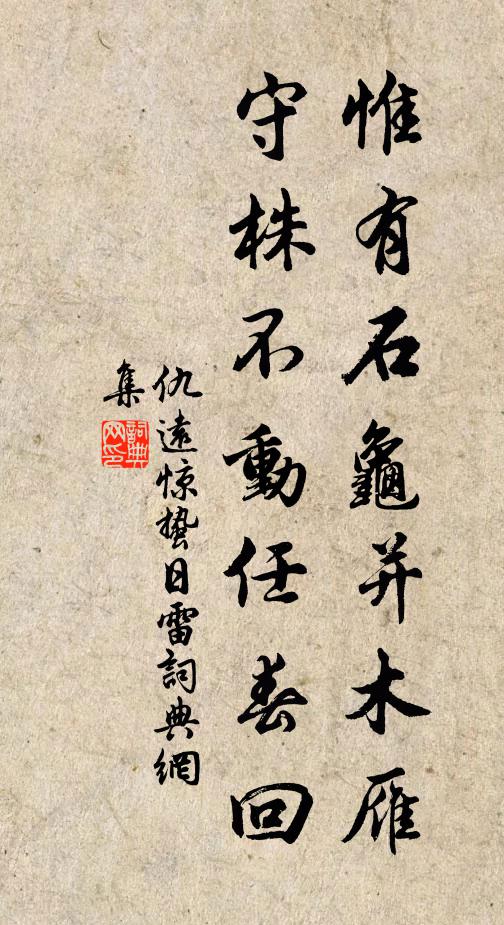 惟有石龜并木雁
守株不動任春回
仇遠惊蛰日雷詞典網
集
詞典
网印